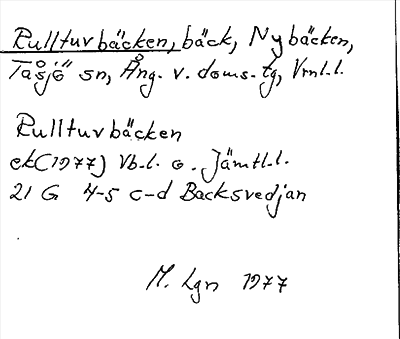 Rullturbäcken, bäck, Nybäcken,
Tåsjö sn, Ång. v. doms. tg, Vrnl.l.
Rullturbäcken
ek(1977) Vb-l. o. Jämtl.l.
21 G 4-5 c-d Backsvedjan
M. Lgn 1977